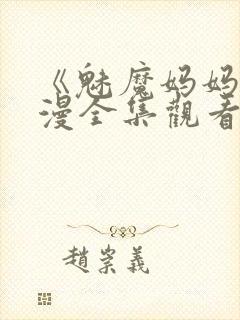 《魅魔妈妈
漫全集觀看
趙崇義